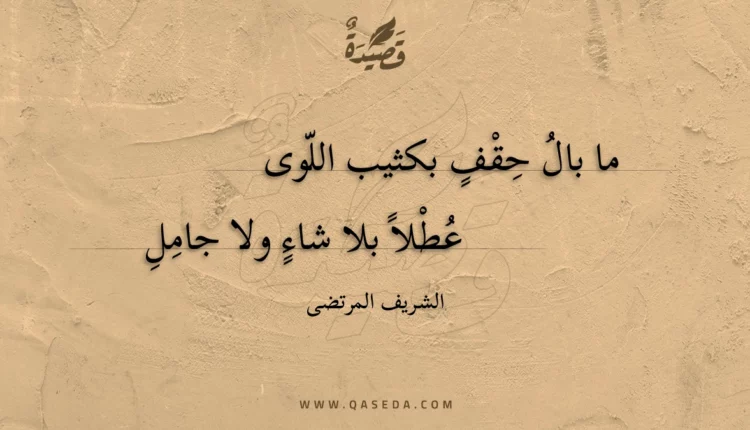 قَصِيْدَةٌ
ما بالُ حِقْفٍ بكثيب اللّوى
عُطْلاً بلا شاءٍ ولا جامِلِ
الشريف المرتضى
WWW.QASEDA.COM